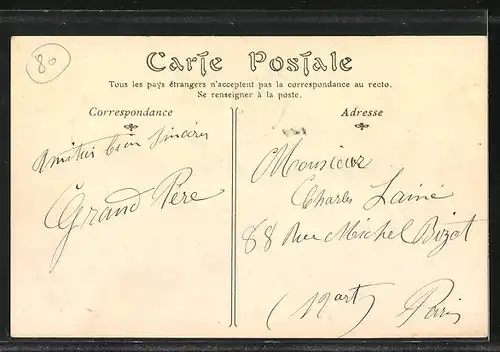 80
Carte Postale
Tous les pays étrangers n'acceptent pas la correspondance au recto.
Se renseigner à la poste.
Correspondance
Amitiés bien sincères
Grand Père
Adresse
Monsieur
Charles Lainé
88 Rue Michel Bizot
(12 art)
Paris